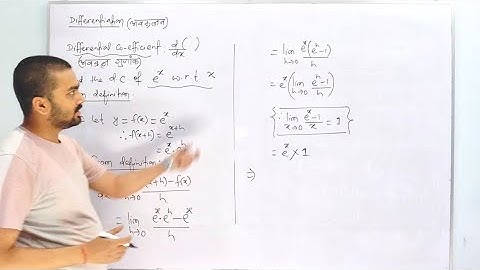 Differentiation (अवकलन)
Differential Co-efficient: d( )/dx
(अवकल गुणांक)
the d C of e^x w.r.t x
definition
let y = f(x) = e^x
∴ f(x+h) = e^(x+h)
= e^x . e^h
From definition
(x+h) - f(x)
h→0 h
= lim h→0 (e^x . e^h - e^x)/h
= lim h→0 e^x(e^h - 1)/h
= e^x (lim h→0 (e^h - 1)/h)
{∵ lim x→0 (e^x - 1)/x = 1}
= e^x × 1
⇒